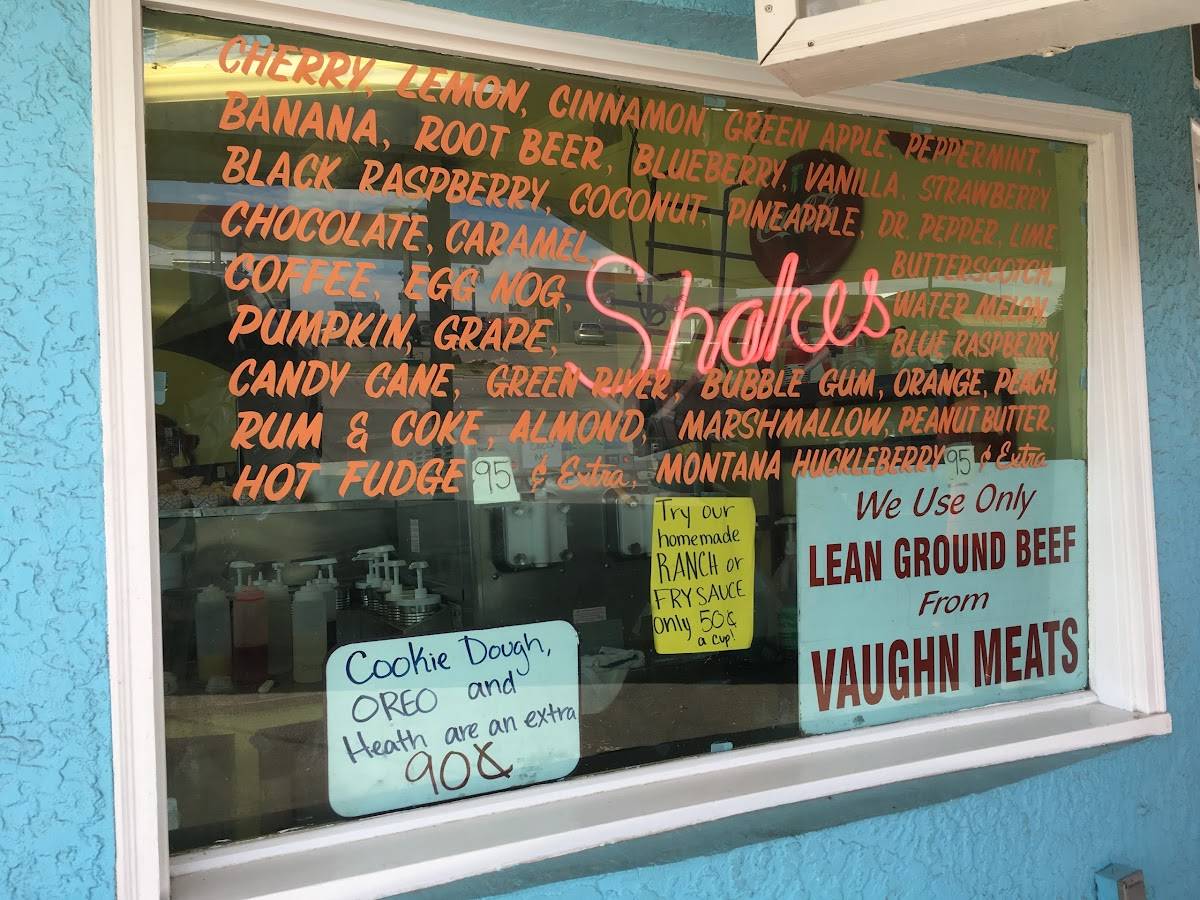 CHERRY, LEMON, CINNAMON GREEN APPLE, PEPPERMINT,
BANANA, ROOT BEER, BLUEBERRY, VANILLA, STRAWBERRY,
BLACK RASPBERRY, COCONUT, PINEAPPLE, DR. PEPPER, LIME
CHOCOLATE, CARAMEL, BUTTERSCOTCH,
COFFEE, EGG NOG, WATER MELON,
PUMPKIN, GRAPE, BLUE RASPBERRY,
Shakes
CANDY CANE, GREEN RIVER, BUBBLE GUM, ORANGE, PEACH,
RUM & COKE, ALMOND, MARSHMALLOW, PEANUT BUTTER,
HOT FUDGE 95 ¢ Extra, MONTANA HUCKLEBERRY 95 ¢ Extra
Try our
homemade
RANCH or
FRY SAUCE
only 50¢
a cup!
We Use Only
LEAN GROUND BEEF
From
VAUGHN MEATS
Cookie Dough,
OREO and
Heath are an extra
90¢